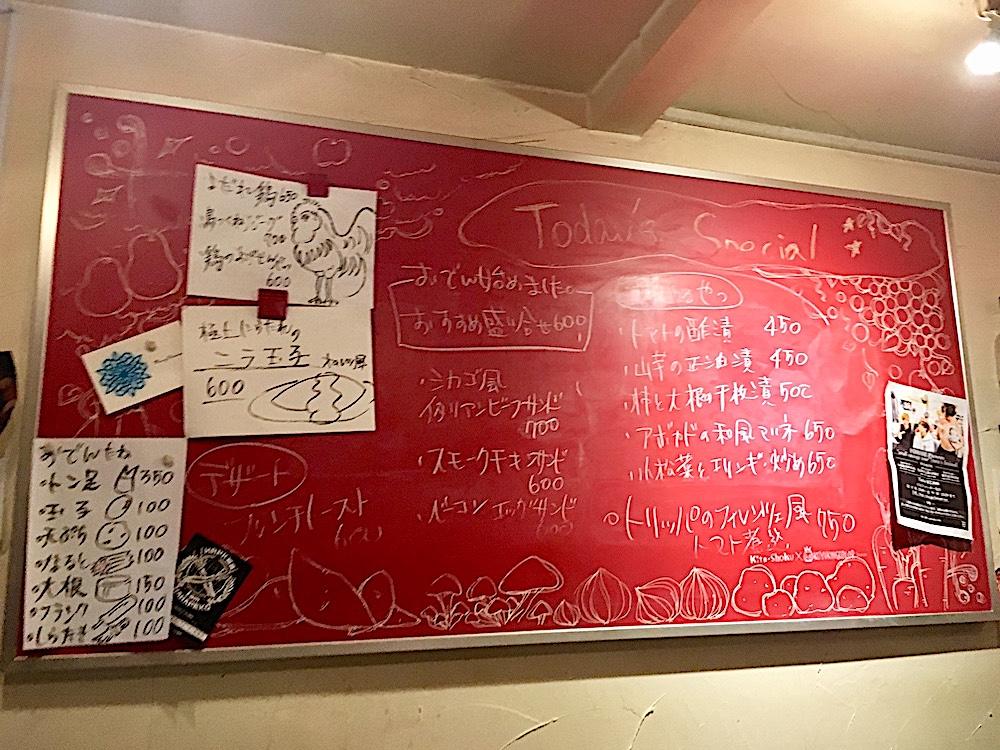 よだれ鶏650
700
600
極上にらだれの
ニラ玉子
600
おでんたね
トン足 350
玉子 100
天ぷら 100
なると 100
大根 150
フランク 100
しらたき 100
Today's Special
おでん始めました。
おすすめ盛り合せ600
・シカゴ風
イタリアンビーフサンド
700
・スモークチキンサンド
600
・ベーコンエッグサンド
600
デザート
フレンチトースト
やつ
・トマトの酢漬 450
・山芋の正油漬 450
・柿と大根千枚漬 500
・アボカドの和風マリネ 650
・小松菜とエリンギ炒め 650
○トリッパのフィレンツェ風 750
トマト煮込
Kita-Shoku×